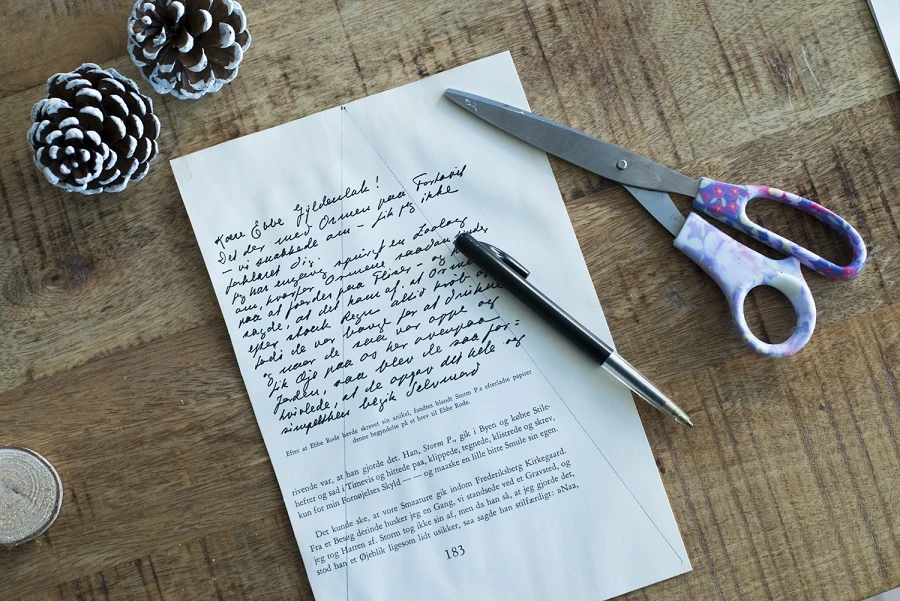 Kære Ebbe Gyldenlak!
Det der med Ormen paa Fortovet
– vi snakkede om – fik jeg ikke
forklaret dig.
Jeg har engang spurgt en Zoolog
om, hvorfor Ormene saadan
paa at færdes paa Fliser – og
sagde, at det kom af, at Ormene
efter stærk Regn altid krøb
fordi de var bange for at drukne
og naar de saa var oppe og
fik Øje paa os her ovenpaa
Jorden, saa blev de saa for=
tvivlede, at de opgav det hele og
simpelthen begik Selvmord
Efter at Ebbe Rode havde skrevet sin artikel, fandtes blandt Storm P.s efterladte papirer
denne begyndelse på et brev til Ebbe Rode.
rivende var, at han gjorde det. Han, Storm P., gik i Byen og købte Stile-
hefter og sad i Timevis og hittede paa, klippede, tegnede, klistrede og skrev,
kun for min Fornøjelses Skyld — — og maaske en lille bitte Smule sin egen.
Det kunde ske, at vore Smaature gik indom Frederiksberg Kirkegaard.
Fra et Besøg derinde husker jeg en Gang, vi standsede ved et Gravsted, og
jeg tog Hatten af. Storm tog ikke sin af, men da han så, at jeg gjorde det,
stod han et Øjeblik ligesom lidt usikker, saa sagde han stilfærdigt: »Naa,
183